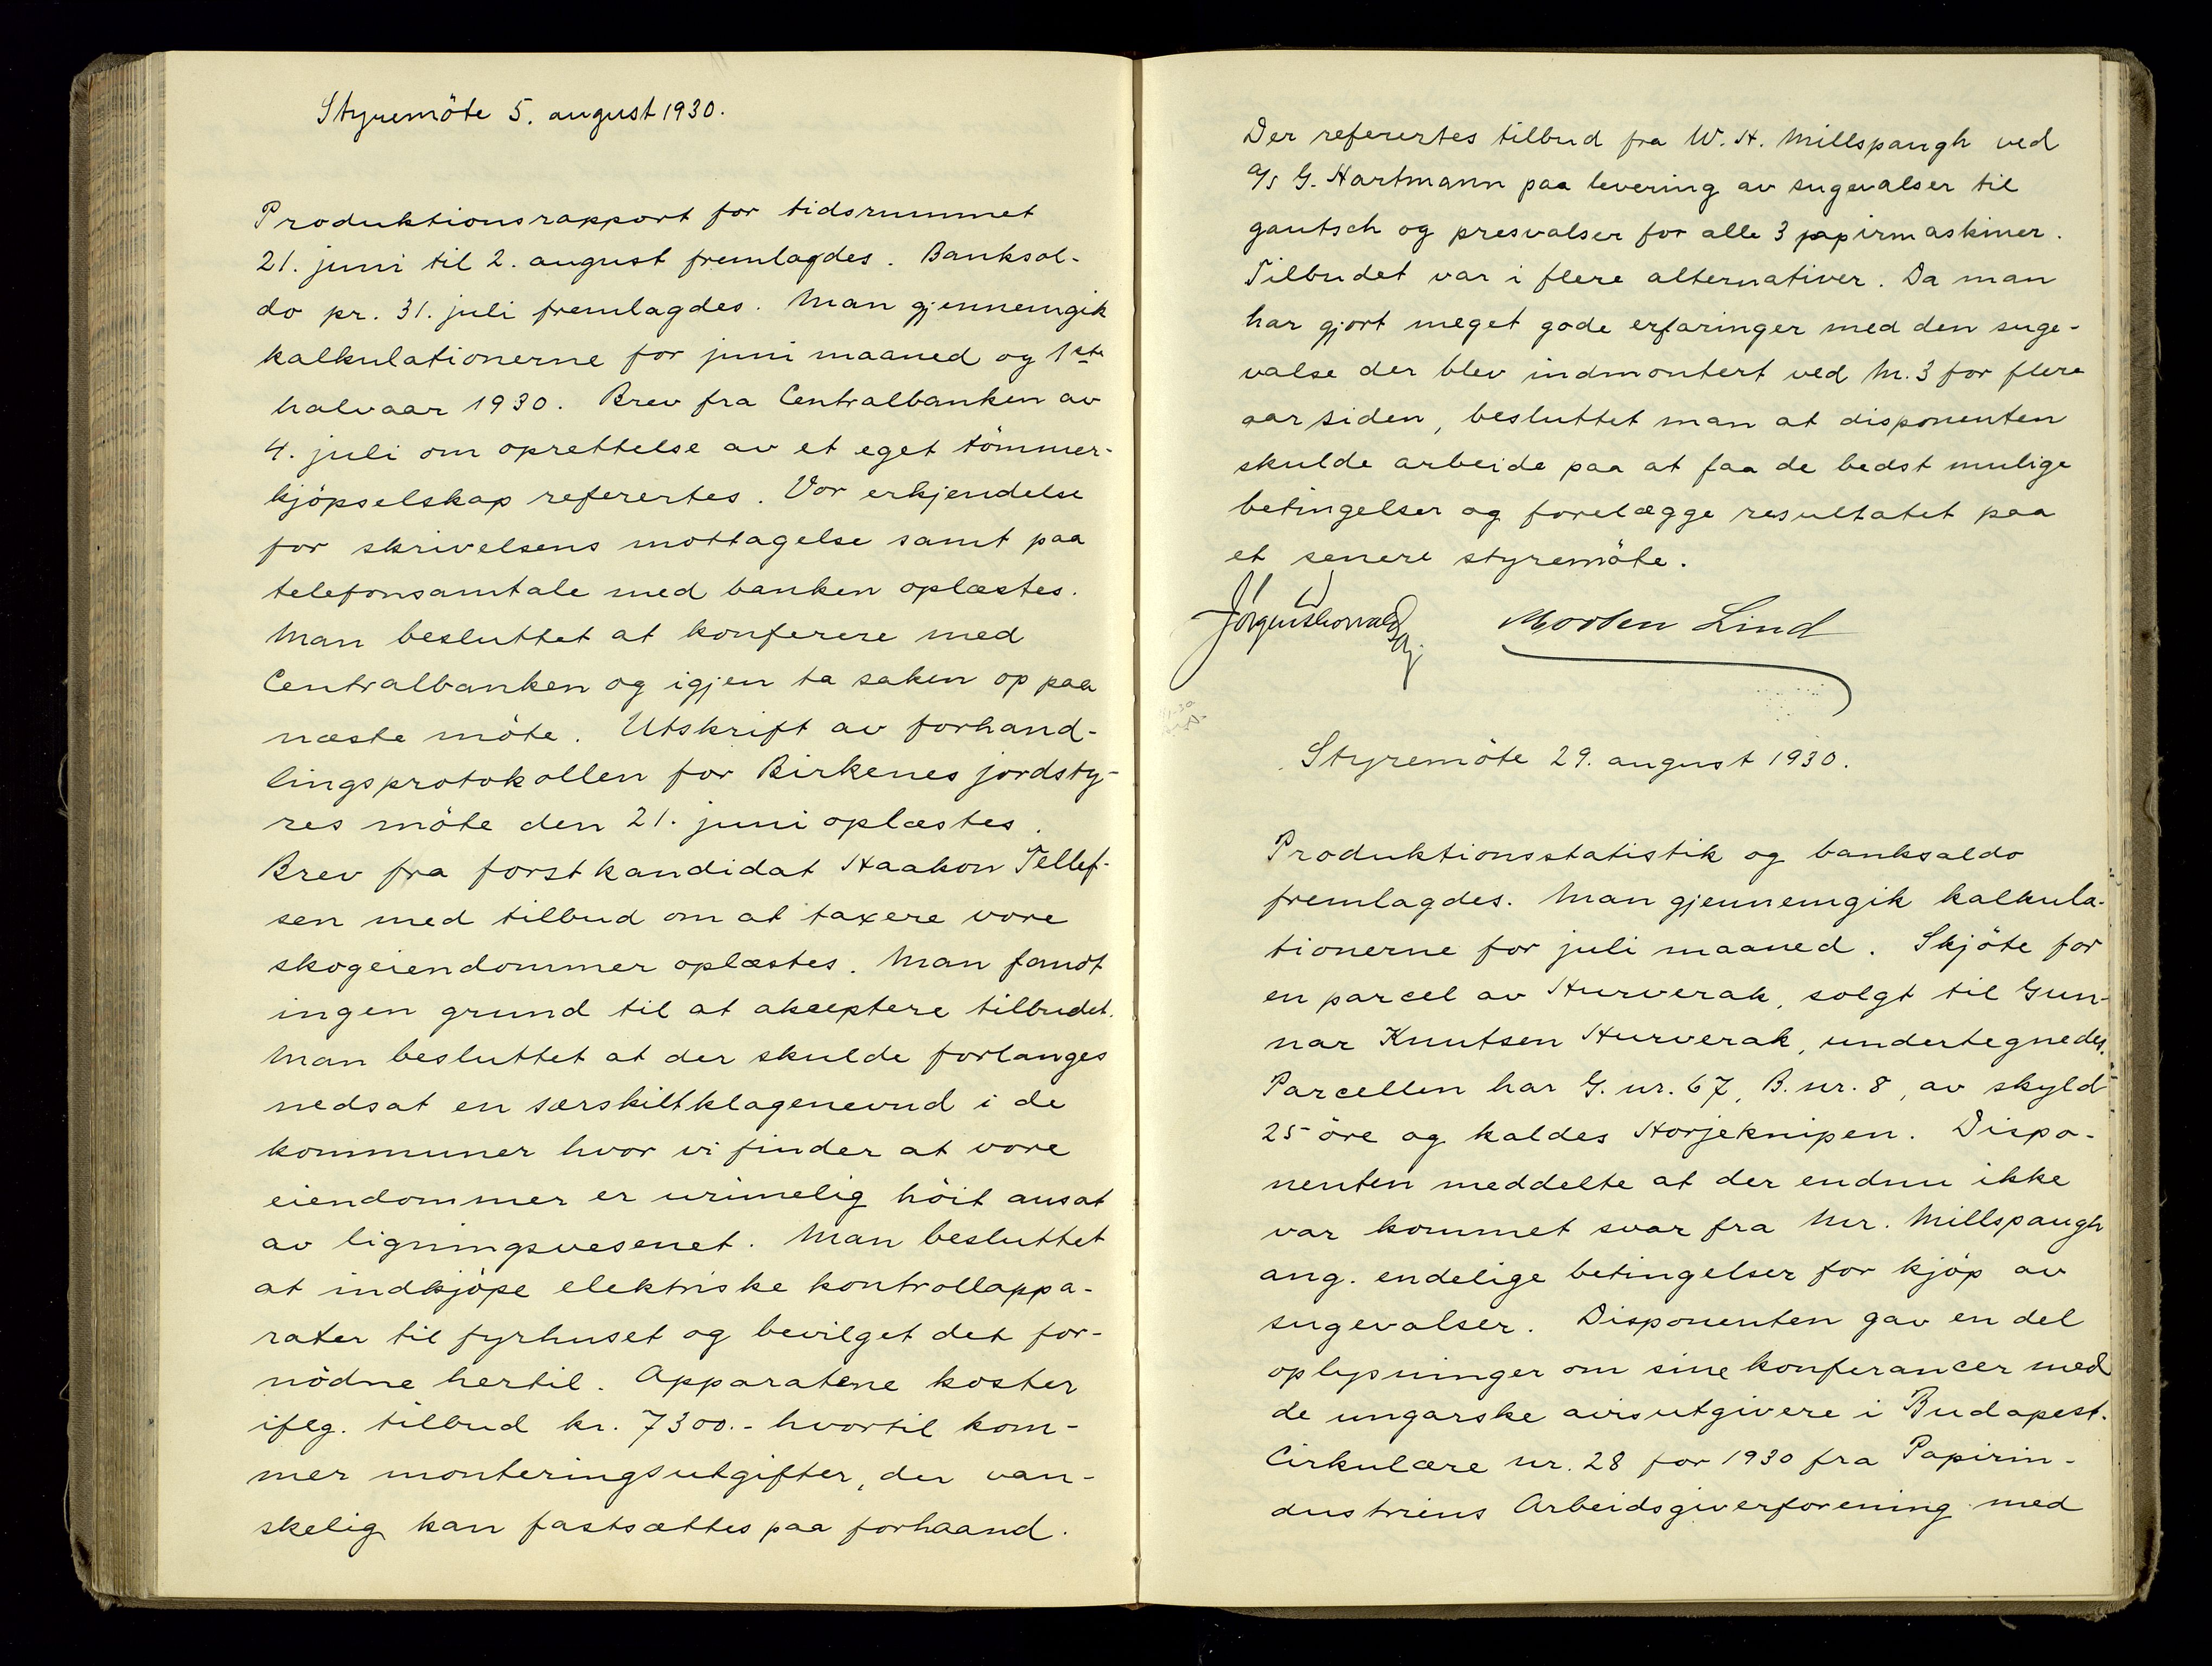 Styremöte 5. august 1930.
Produktionsrapport for tidsrummet
21. juni til 2. august fremlagdes. Banksal-
do pr. 31. juli fremlagdes. Man gjennemgik
kalkulationerne for juni maaned og 1ste
halvaar 1930. Brev fra Centralbanken av
4. juli om oprettelse av et eget tömmer-
kjöpselskap referertes. Vor erkjendelse
for skrivelsens mottagelse samt paa
telefonsamtale med banken oplæstes.
Man besluttet at konferere med
Centralbanken og igjen ta saken op paa
næste möte. Utskrift av forhand-
lingsprotokollen for Birkenes jordsty-
res möte den 21. juni oplæstes.
Brev fra forstkandidat Haakon Tellef-
sen med tilbud om at taxere vore
skogeiendommer oplæstes. Man fandt
ingen grund til at akceptere tilbudet.
Man besluttet at der skulde forlanges
nedsat en særskilt klagenevnd i de
kommuner hvor vi finder at vore
eiendommer er urimelig höit ansat
av ligningsvesenet. Man besluttet
at indkjöpe elektriske kontrollappa-
rater til fyrhuset og bevilget det for-
nödne hertil. Apparatene koster
iflg. tilbud kr. 7300.- hvortil kom-
mer monteringsutgifter, der van-
skelig kan fastsættes paa forhaand.
Der referertes tilbud fra W. H. Millspaugh ved
A/S G. Hartmann paa levering av sugevalser til
gautsch og presvalser for alle 3 papirmaskiner.
Tilbudet var i flere alternativer. Da man
har gjort meget gode erfaringer med den suge-
valse der blev indmontert ved M. 3 for flere
aar siden, besluttet man at disponenten
skulde arbeide paa at faa de bedst mulige
betingelser og forelægge resultatet paa
et senere styremöte.
Morten Lind
Styremöte 29. august 1930.
Produktionsstatistik og banksaldo
fremlagdes. Man gjennemgik kalkula-
tionerne for juli maaned. Skjöte for
en parcel av Hurverak, solgt til Gun-
nar Knutsen Hurverak, undertegnedes.
Parcellen har G. nr. 67, B. nr. 8, av skyld
25 öre og kaldes Horjeknipen. Dispo-
nenten meddelte at der endnu ikke
var kommet svar fra Mr. Millspaugh
ang. endelige betingelser for kjöp av
sugevalser. Disponenten gav en del
oplysninger om sine konferancer med
de ungarske avisutgivere i Budapest.
Cirkulære nr. 28 for 1930 fra Papirin-
dustriens Arbeidsgiverforening med